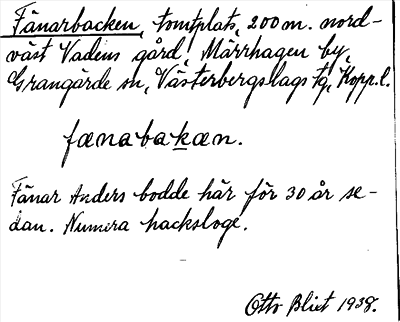 Fänarbacken, tomtplats, 200 m. nord-
väst Vadens gård, Märrhagen by,
Grangärde sn, Västerbergslags tg, Kopp.l.
fænabakæn.
Fänar Anders bodde här för 30 år se-
dan. Numera hacksloge.
Otto Blixt 1938.